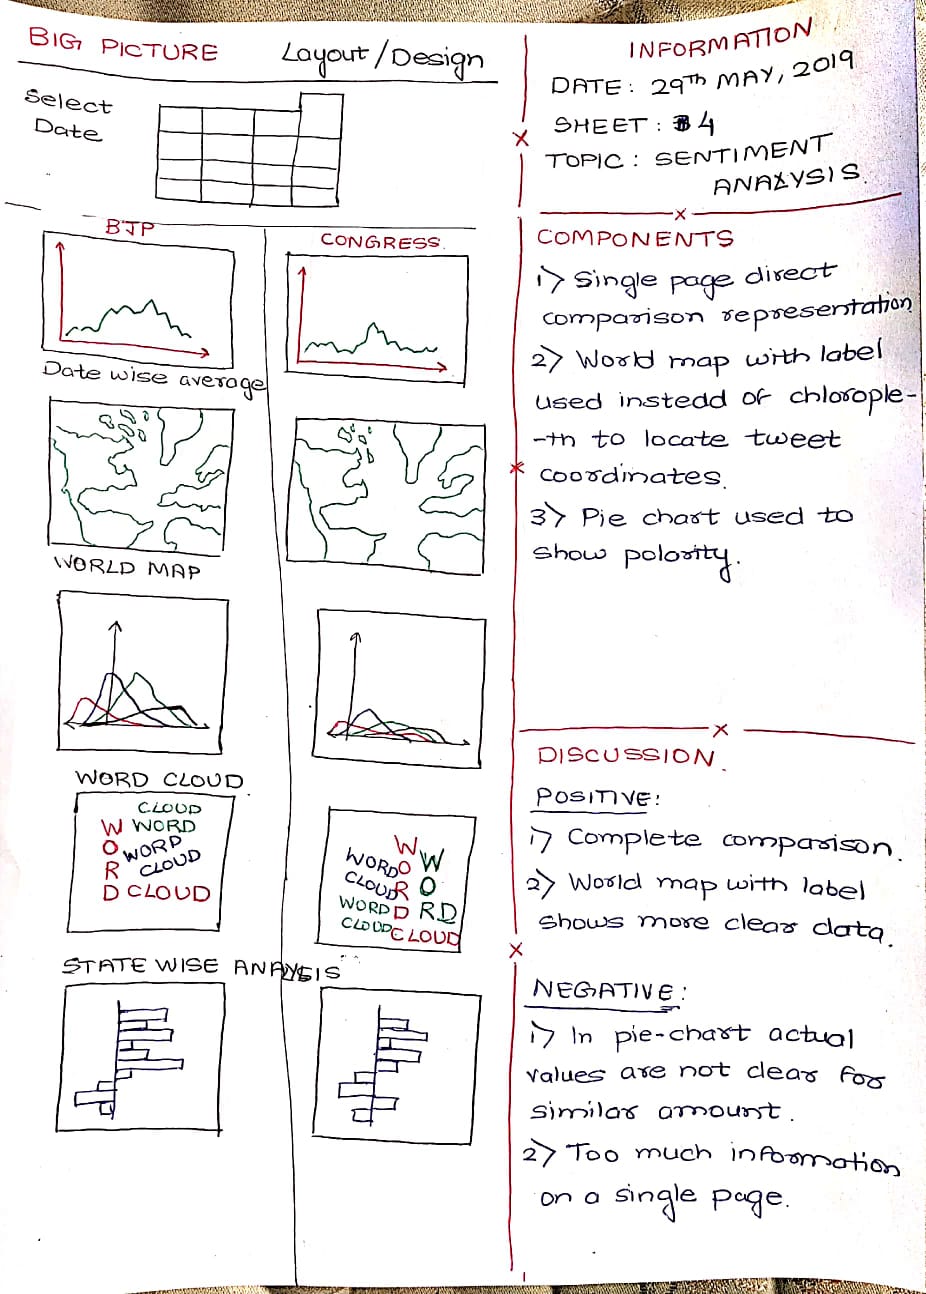 BIG PICTURE
Layout/Design
Select
Date
BJP
CONGRESS.
Date wise average
WORLD MAP
WORD CLOUD.
CLOUD
W WORD
O WORD
R CLOUD
D CLOUD
W
WORD O W
CLOUD R O
WORD D RD
CLOUD CLOUD
STATE WISE ANALYSIS
INFORMATION
DATE: 29TH MAY, 2019
SHEET: 4
TOPIC: SENTIMENT
ANALYSIS.
COMPONENTS
1) Single page direct
comparison representation
2) World map with label
used instedd of chlorople-
-th to locate tweet
coordinates.
3) Pie chart used to
show polority.
DISCUSSION.
POSITIVE:
1) Complete comparison.
2) World map with label
shows more clear data.
NEGATIVE:
1) In pie-chart actual
values are not clear for
similar amount.
2) Too much information
on a single page.